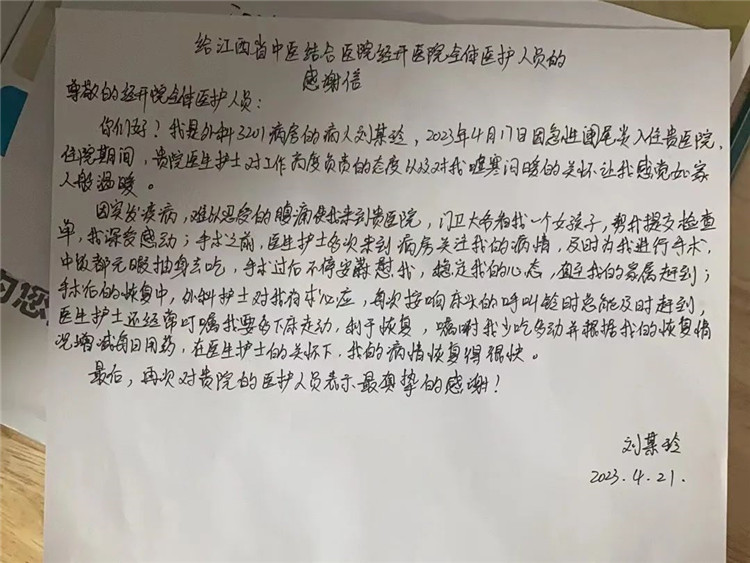 给江西省中医结合医院经开医院全体医护人员的
感谢信
尊敬的经开院全体医护人员：
你们好？我是外科3201病房的病人刘某玲，2023年4月17日因急性阑尾炎入住贵医院，
住院期间，贵院医生护士对工作高度负责的态度以及对我嘘寒问暖的关怀让我感觉如家
人般温暖。
因突发疾病，难以忍受的腹痛使我来到贵医院，门卫大爷看我一个女孩子，帮我提交检查
单，我深受感动；手术之前，医生护士多次来到病房关注我的病情，及时为我进行手术，
中饭都无暇抽身去吃，手术过后不停安慰我，稳定我的心态，直至我的家属赶到；
手术后的恢复中，外科护士对我有求必应，每次按响床头的呼叫铃时总能及时赶到，
医生护士还经常叮嘱我要多下床走动，利于恢复，嘱咐我少吃多动并根据我的恢复情
况增减每日用药，在医生护士的关怀下，我的病情恢复得很快。
最后，再次对贵院的医护人员表示最真挚的感谢！
刘某玲
2023.4.21.
为您